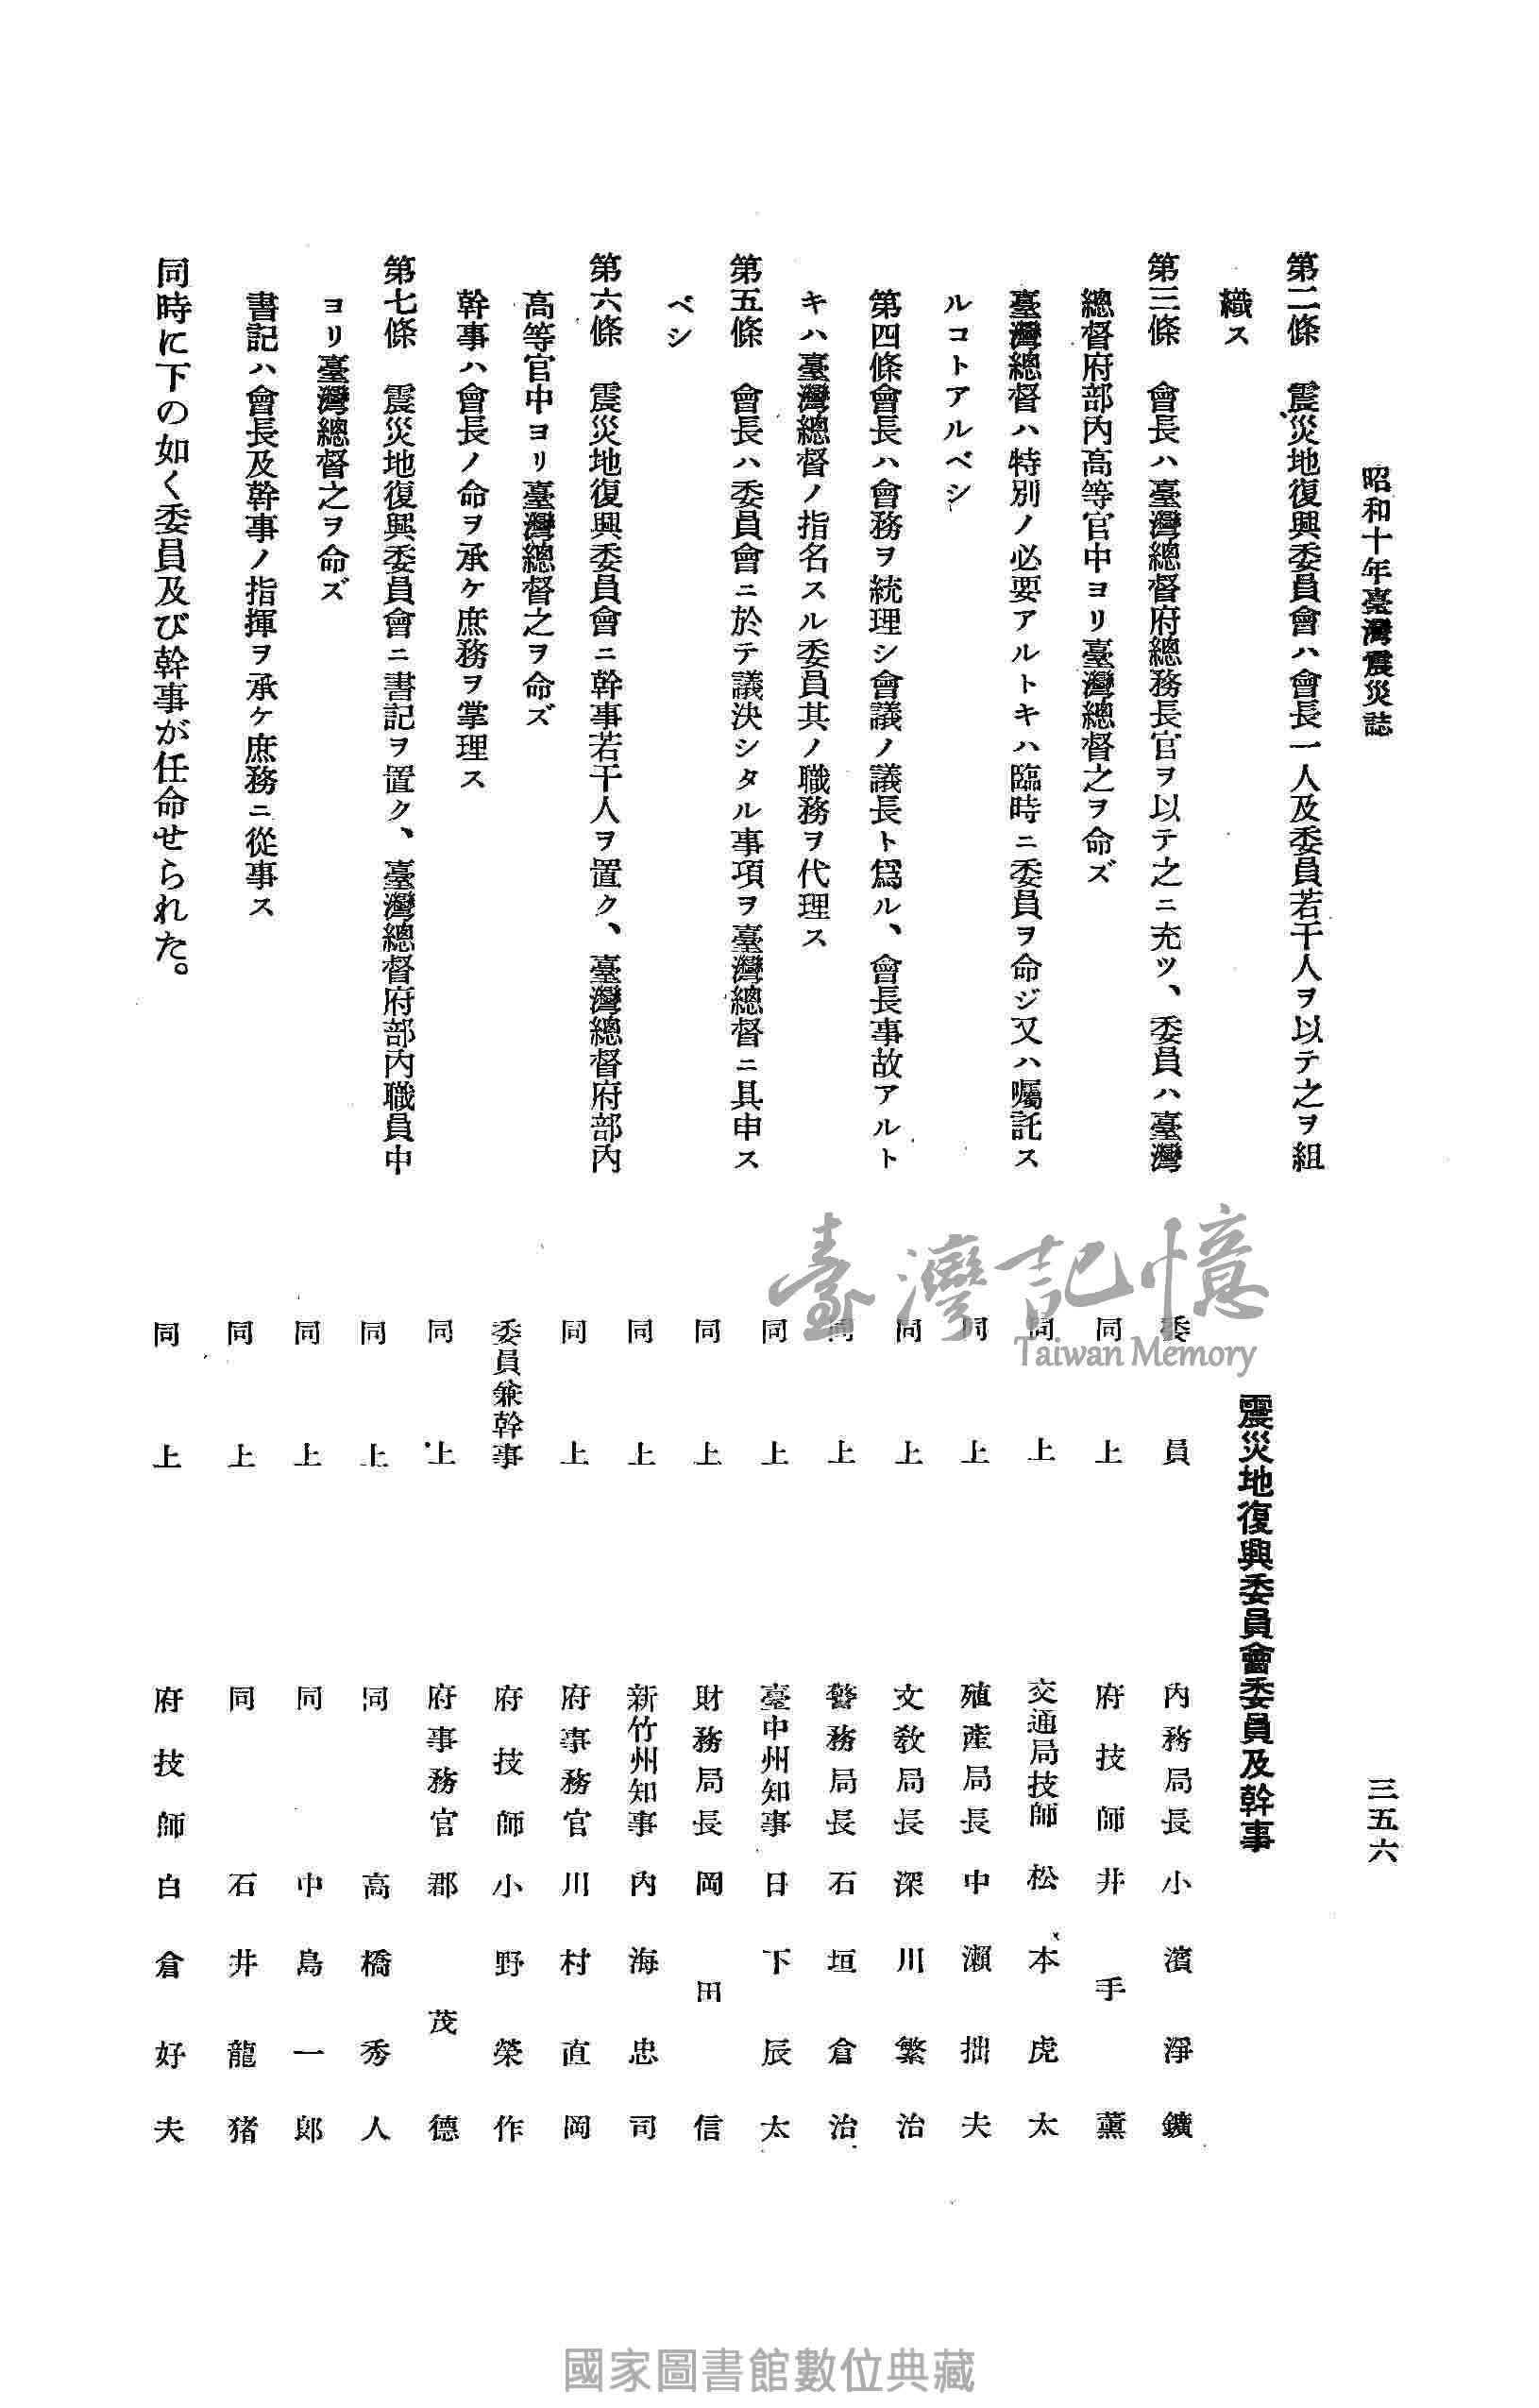 昭和十年臺灣震災誌
三五六
第二條　震災地復興委員會ハ會長一人及委員若干人ヲ以テ之ヲ組
織ス
第三條　會長ハ臺灣總督府總務長官ヲ以テ之ニ充ツ、委員ハ臺灣
總督府部內高等官中ヨリ臺灣總督之ヲ命ズ
臺灣總督ハ特別ノ必要アルトキハ臨時ニ委員ヲ命ジ又ハ囑託ス
ルコトアルベシ
第四條會長ハ會務ヲ統理シ會議ノ議長ト爲ル、會長事故アルト
キハ臺灣總督ノ指名スル委員其ノ職務ヲ代理ス
第五條　會長ハ委員會ニ於テ議決シタル事項ヲ臺灣總督ニ具申ス
ベシ
第六條　震災地復興委員會ニ幹事若干人ヲ置ク、臺灣總督府部內
高等官中ヨリ臺灣總督之ヲ命ズ
幹事ハ會長ノ命ヲ承ケ庶務ヲ掌理ス
第七條　震災地復興委員會ニ書記ヲ置ク、臺灣總督府部內職員中
ヨリ臺灣總督之ヲ命ズ
書記ハ會長及幹事ノ指揮ヲ承ケ庶務ニ從事ス
同時に下の如く委員及び幹事が任命せられた。
震災地復興委員會委員及幹事
委員　內務局長　小濱淨鑛
同上　府技師　井手薰
同上　交通局技師　松本虎太
同上　殖產局長　中瀨拙夫
同上　文敎局長　深川繁治
同上　警務局長　石垣倉治
同上　臺中州知事　日下辰太
同上　財務局長　岡田信
同上　新竹州知事　內海忠司
同上　府事務官　川村直岡
委員兼幹事　府技師　小野榮作
同上　府事務官　郡茂德
同上　同　高橋秀人
同上　同　中島一郞
同上　同　石井龍猪
同上　府技師　白倉好夫
臺灣記憶
Taiwan Memory
國家圖書館數位典藏